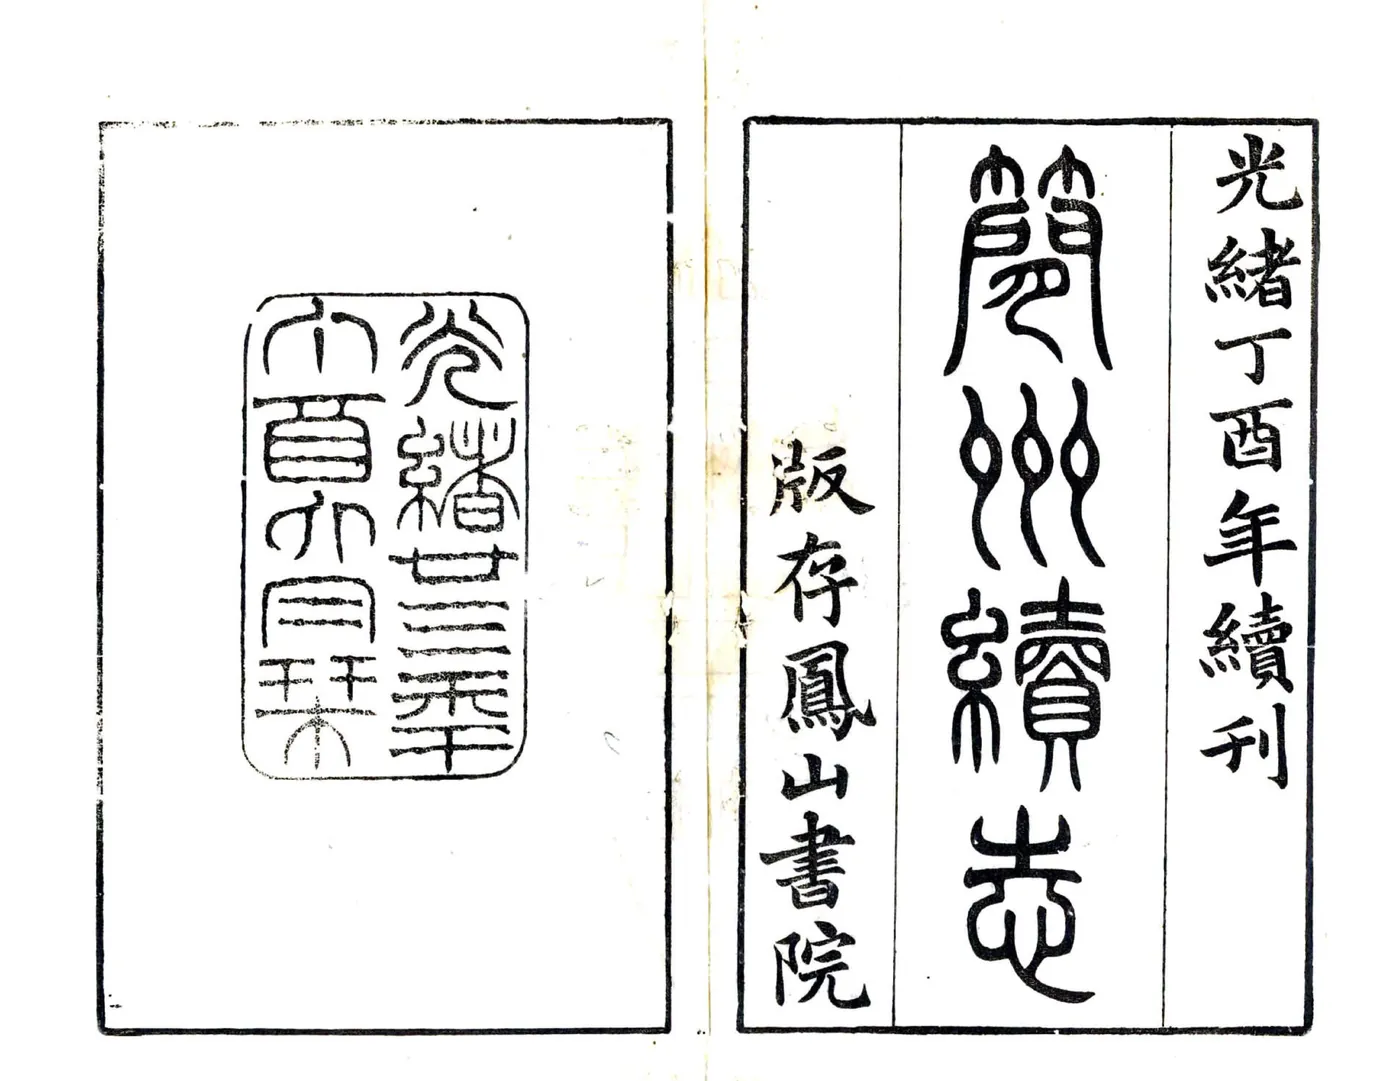 光緒丁酉年續刊
簡州續志
版存鳳山書院
光緒廿三年
夏六月栞